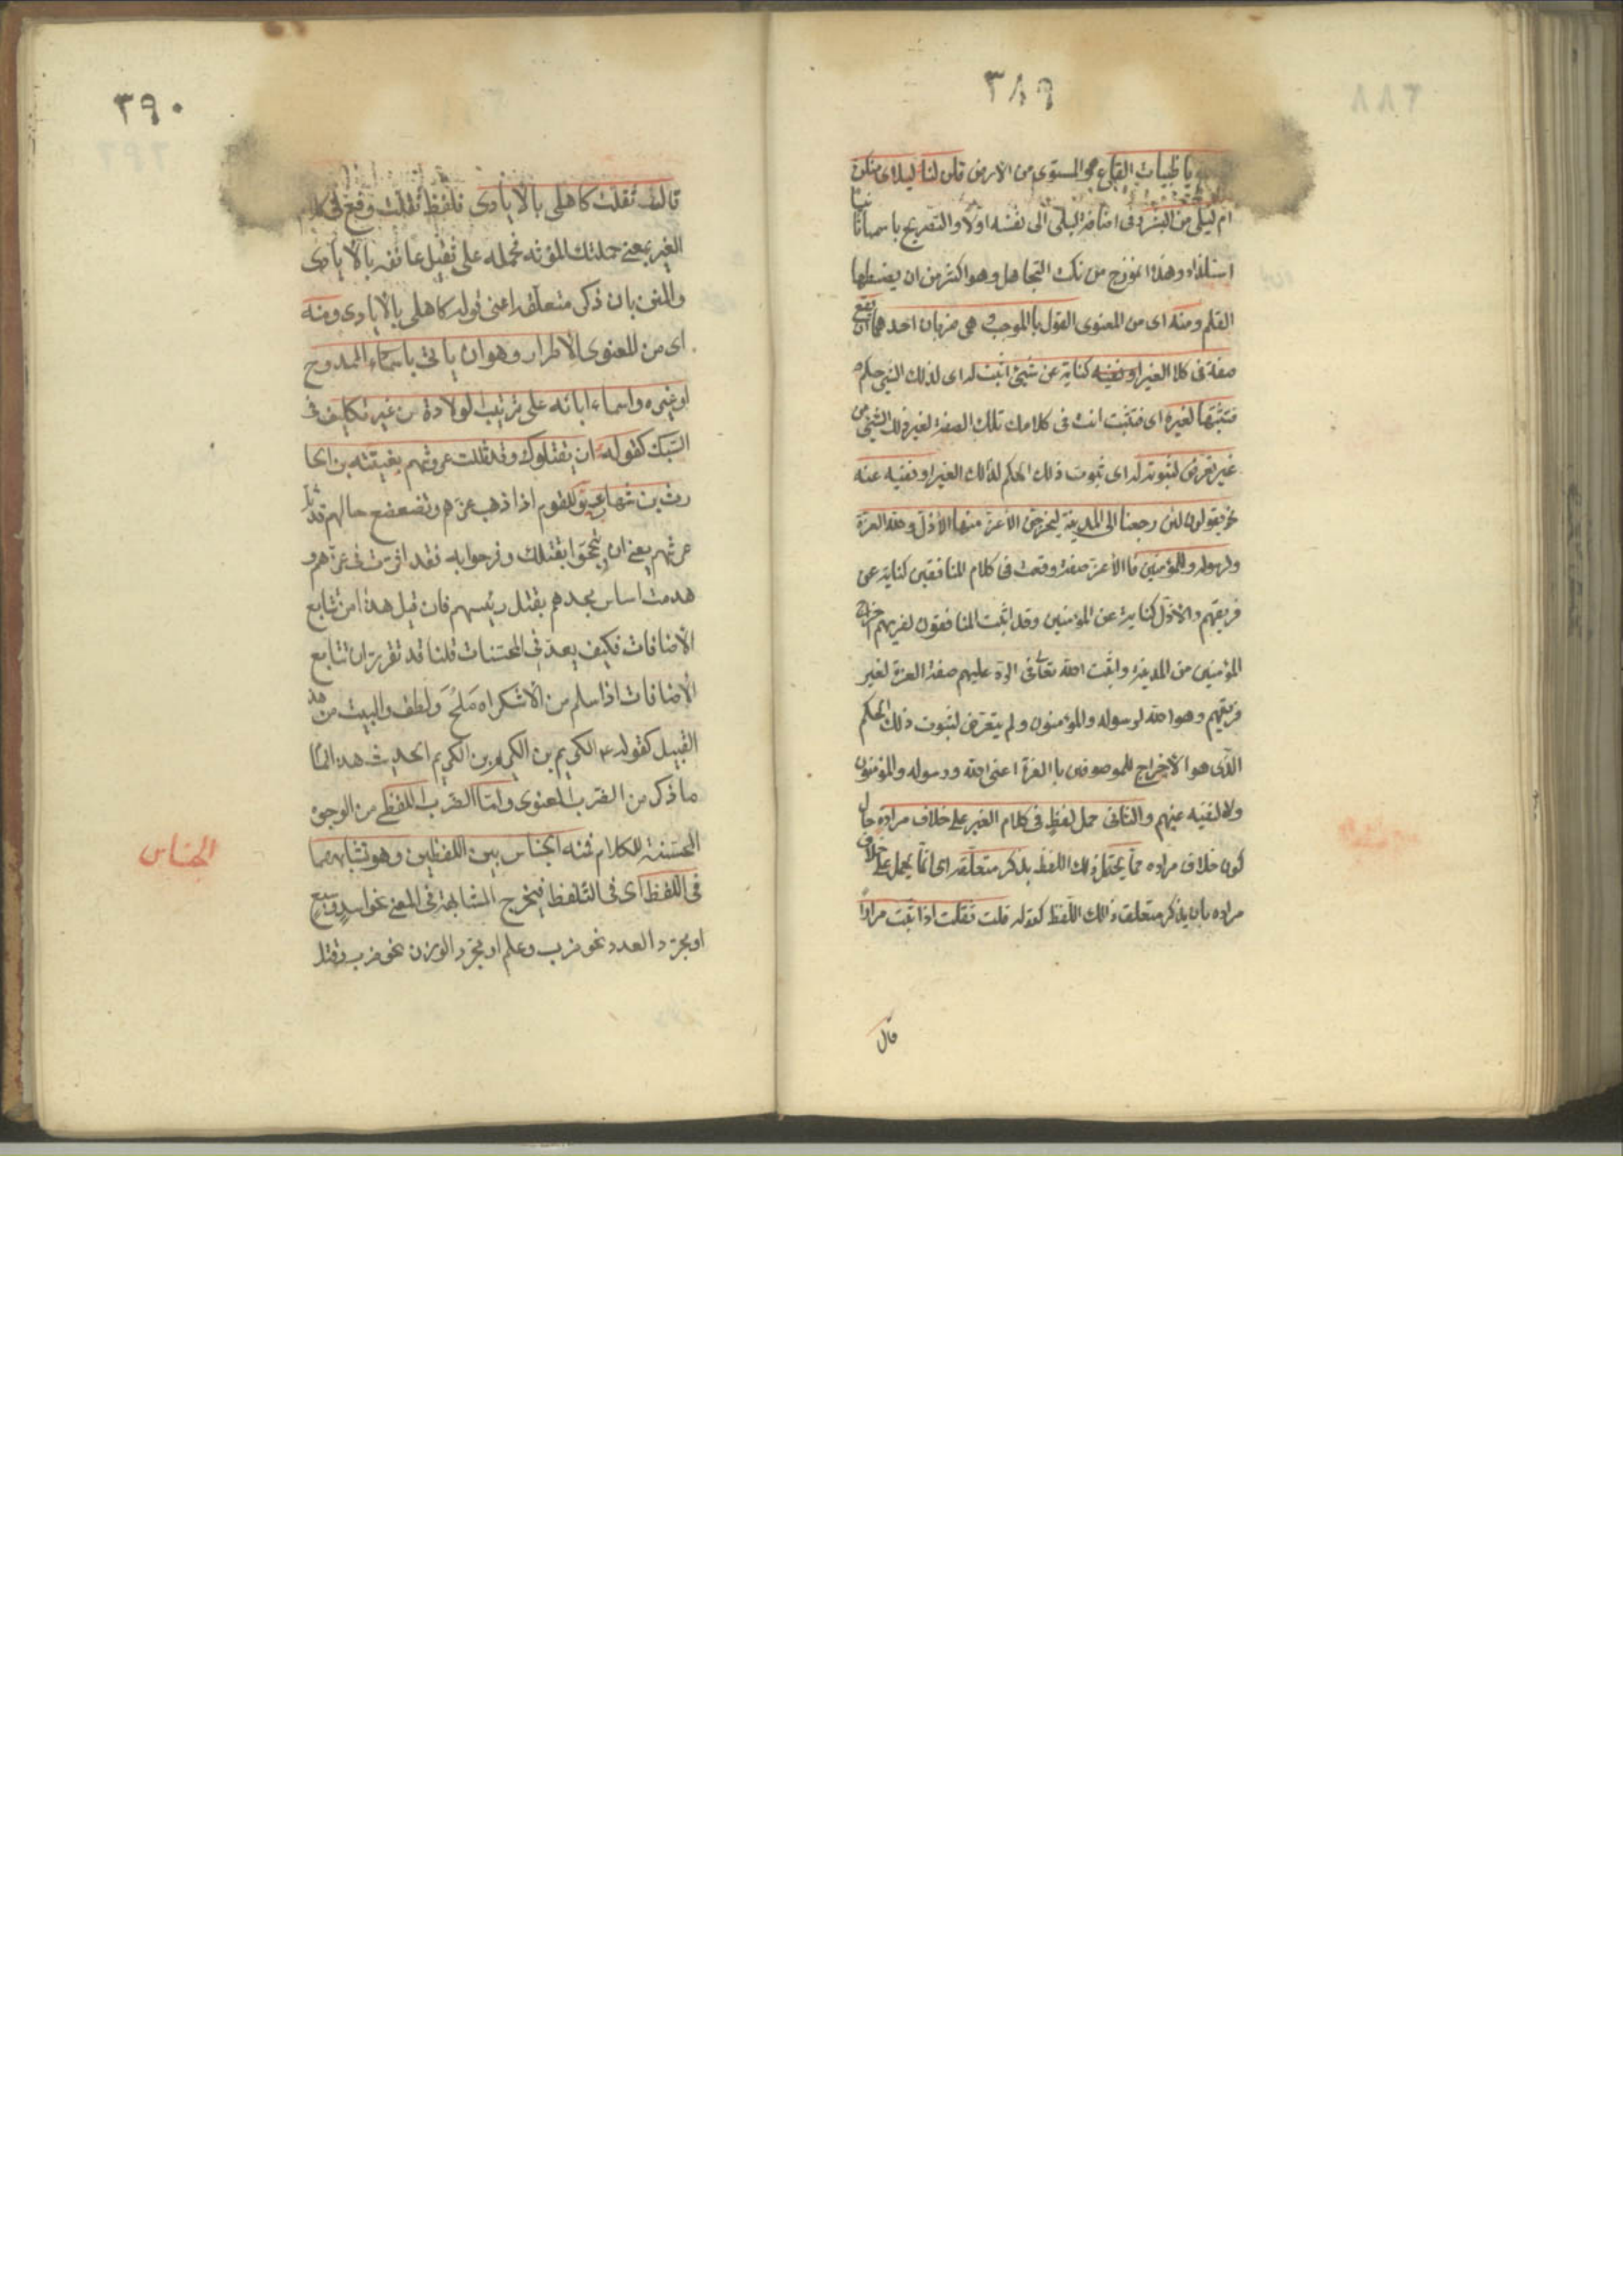 ٣٨٩
يا ظبيات القاع هو المستوى من الارض قلن لنا ليلاى منكن
ام ليلى من البشر وفى اضافة ليلى الى نفسه اولا والتصريح باسمها ثانيا
استلذاذ وهذا انموذج من نكت التجاهل وهو اكثر من ان يضبطها
القلم ومنه اى من المعنوى القول بالموجب وهى ضربان احدهما ان تقع
صفة فى كلام الغير او نفيه كناية عن شئ اثبت له اى لذلك الشئ حكم
فتثبتها لغيره اى فتثبت انت فى كلامك تلك الصفة لغير ذلك الشئ من
غير تعرض لثبوته له اى ثبوت ذلك الحكم لذلك الغير او نفيه عنه
نحو يقولون لئن رجعنا الى المدينة ليخرجن الاعز منها الاذل ولله العزة
ولرسوله وللمؤمنين فالاعز صفة وقعت فى كلام المنافقين كناية عن
فريقهم والاذل كناية عن المؤمنين وقد اثبت المنافقون لفريقهم اخراج
المؤمنين من المدينة واثبت الله تعالى فى الرد عليهم صفة العزة لغير
فريقهم وهو الله لرسوله والمؤمنون ولم يتعرض لثبوت ذلك الحكم
الذى هو الاخراج للموصوفين با العزة اعنى الله ورسوله والمؤمنون
ولا لنفيه عنهم والثانى حمل لفظ فى كلام الغير على خلاف مراده حال
كون خلاف مراده مما يحتمل ذلك اللفظ بذكر متعلقه اى انما يحمل على خلاف
مراده بان يذكر متعلق ذلك اللفظ كقوله قلت ثقلت اذا تيت مرارا
قال
٣٩٠
قال ثقلت كاهلى بالايادى فلفظ ثقلت وقع فى كلام
الغير بمعنى حملتك المؤنه فحمله على تثقيل عاتقه بالايادى
والمنن بان ذكر متعلقه اعنى قوله كاهلى بالايادى ومنه
اى من المعنوى الاطراد وهو ان ياتى باسماء الممدوح
او غيره واسماء ابائه على ترتيب الولادة من غير تكلف فى
السبك كقوله ان يقتلوك فقد ثللت عروشهم بعتيبة بن الحا
رث بن شهاب يق للقوم اذا ذهب عزهم وتضعضع حالهم قد ثل
عرشهم يعنى ان تبجحوا بقتلك وفرحوا به فقد اثرت فى عزهم و
هدمت اساس مجدهم بقتل رئيسهم فان قيل هذا من تتابع
الاضافات فكيف يعد فى المحسنات قلنا قد تقرر ان تتابع
الاضافات اذا سلم من الاستكراه ملح ولطف والبيت من هذ
القبيل كقوله ع الكريم بن الكريم بن الكريم الحديث هذا تمام
ما ذكر من الضرب المعنوى واما الضرب اللفظى من الوجوه
المحسنة للكلام فمنه الجناس بين اللفظين وهو تشابههما
فى اللفظ اى فى التلفظ فيخرج المشابهة فى المعنى نحو اسد وسبع
او مجرد العدد نحو ضرب وعلم او مجرد الوزن نحو ضرب وقتل
الجناس